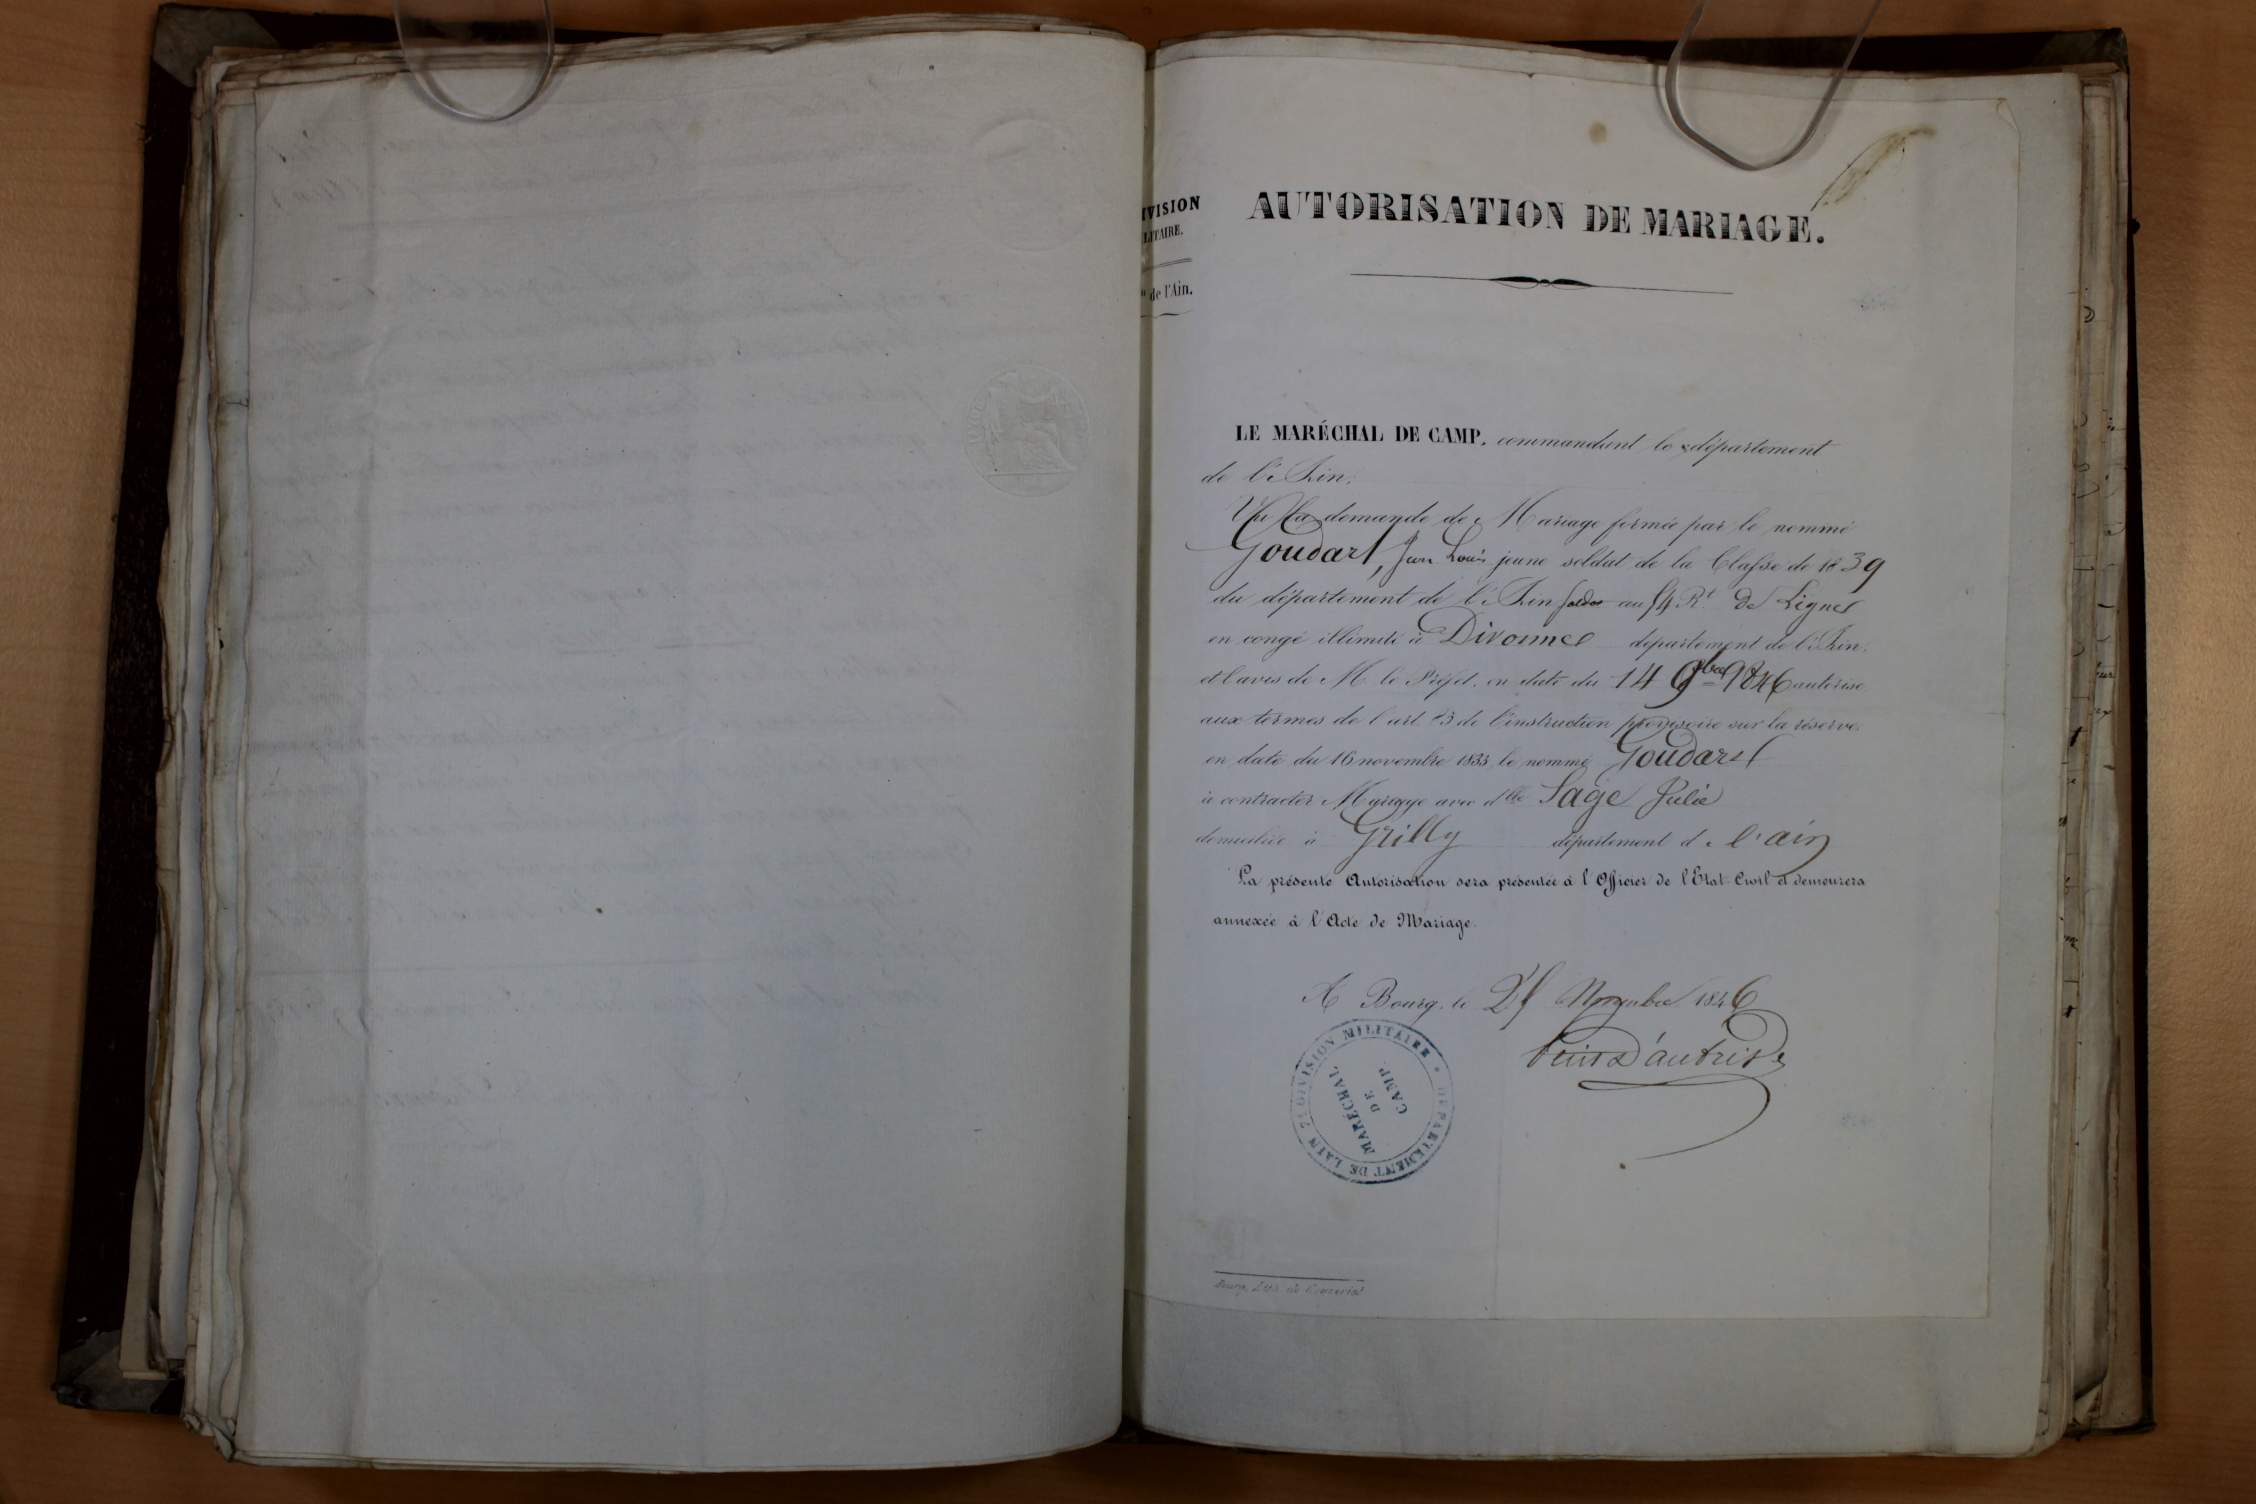 IVISION
LITAIRE.
de l'Ain.
AUTORISATION DE MARIAGE.
LE MARÉCHAL DE CAMP, commandant le département
de l'Ain,
Vu la demande de Mariage formée par le nommé
Goudart, Jean Louis jeune soldat de la Classe de 1839
du département de l'Ain soldat au 54 Rt de Ligne
en congé illimité à Divonne département de l'Ain,
et l'avis de M. le Préfet, en date du 14 9bre 1846 autorise
aux termes de l'art. 3 de l'instruction provisoire sur la réserve,
en date du 16 novembre 1833, le nommé Goudart
à contracter Mariage avec dlle Sage Julie
domiciliée à Grilly département de l'ain
La présente Autorisation sera présentée à l'Officier de l'État-Civil et demeurera
annexée à l'Acte de Mariage.
A Bourg, le Novembre 1846
DIVISION MILITAIRE * DÉPARTEMENT DE L'AIN
MARÉCHAL
DE
CAMP.
Bourg, Lith. de